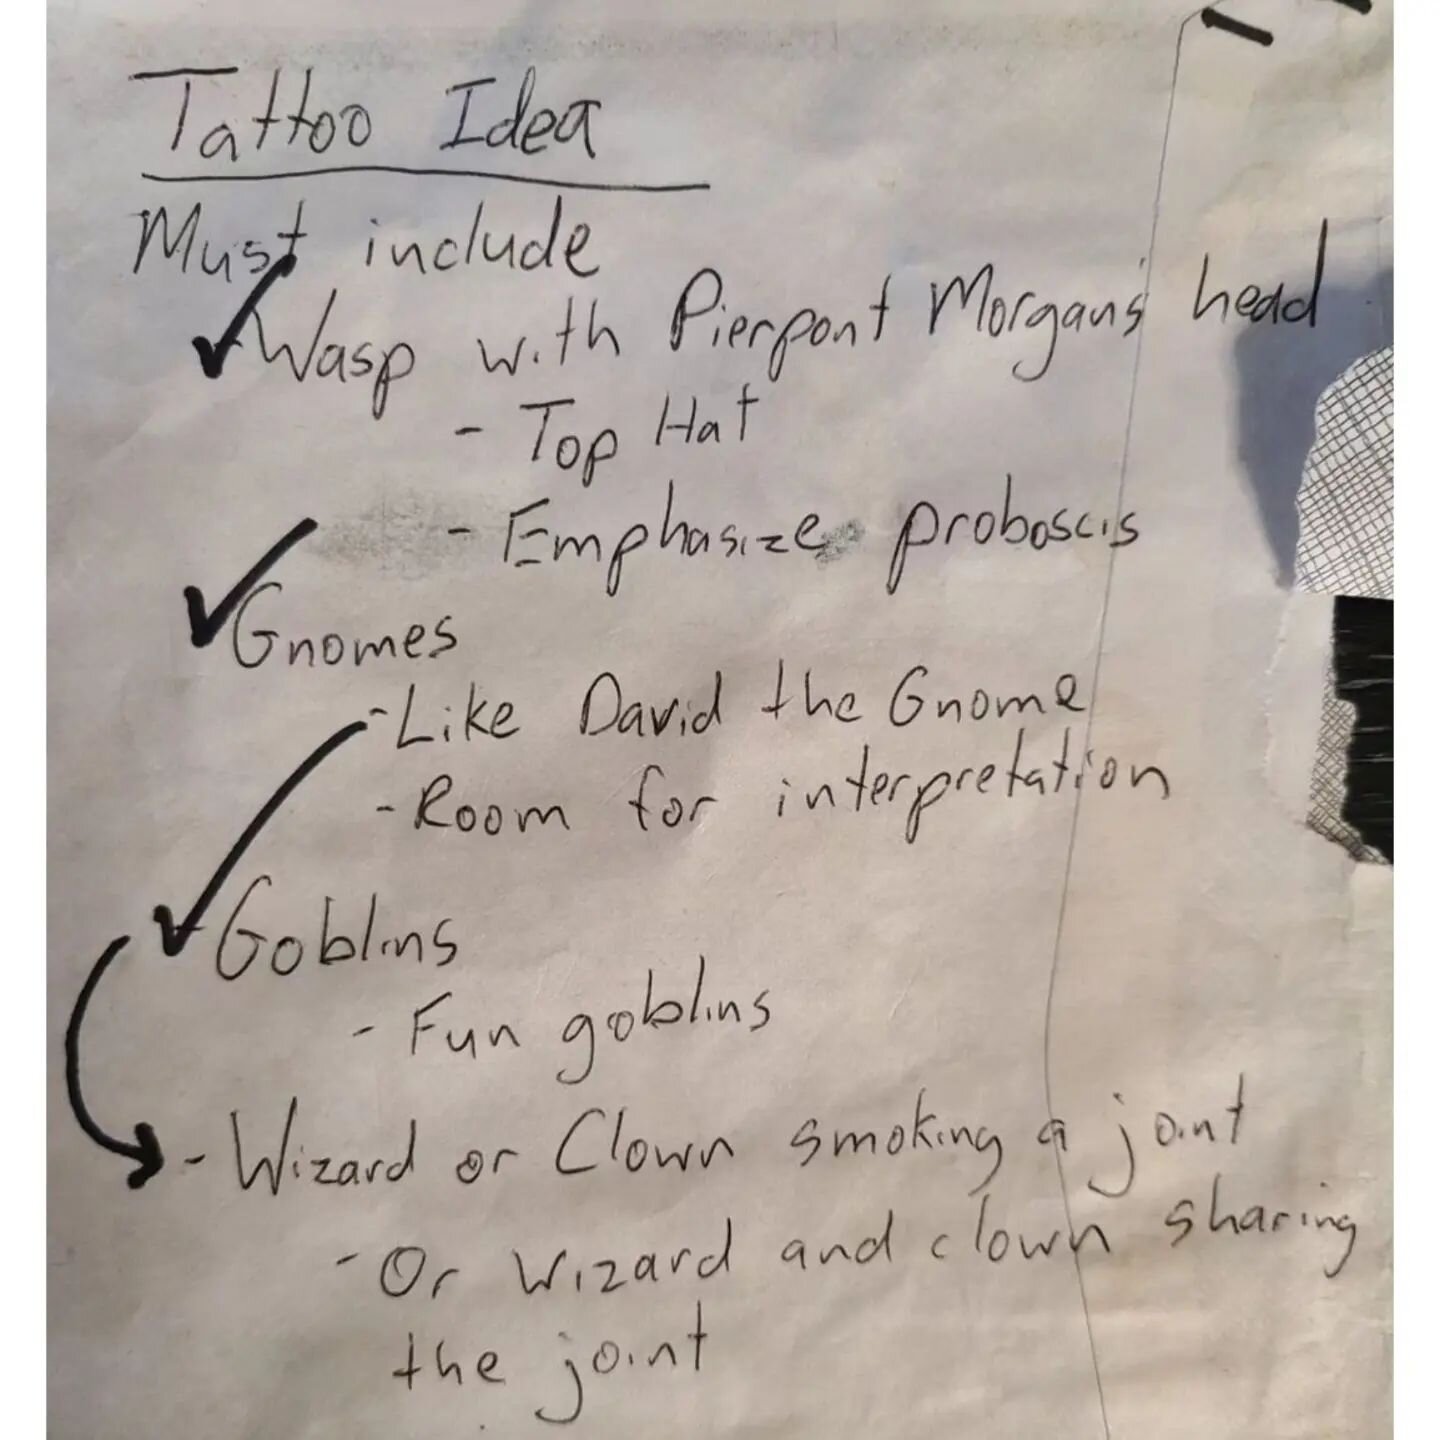 Tattoo Idea
Must include
Wasp with Pierpont Morgan's head
- Top Hat
- Emphasize proboscis
Gnomes
- Like David the Gnome
- Room for interpretation
Goblins
- Fun goblins
- Wizard or Clown smoking a joint
- Or wizard and clown sharing
the joint